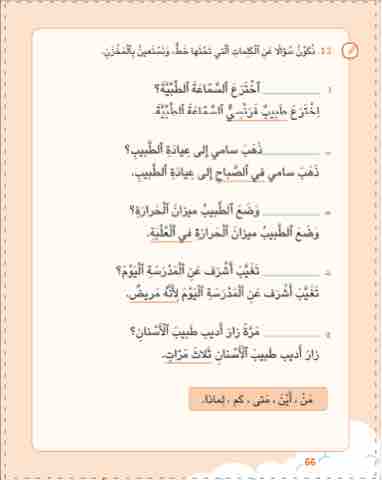 12- نُكَوِّنُ سُؤالًا عَنِ ٱلْكَلِماتِ ٱلَّتي تَحْتَها خَطٌّ، وَنَسْتَعينُ بِٱلْمَخْزَنِ.
أ- ________ ٱخْتَرَعَ ٱلسَّمّاعَةَ ٱلطِّبِّيَّةَ؟
اِخْتَرَعَ طَبيبٌ فَرَنْسِيٌّ ٱلسَّمّاعَةَ ٱلطِّبِّيَّةَ.
________ ذَهَبَ سامي إِلى عِيادَةِ ٱلطَّبيبِ؟
ذَهَبَ سامي في ٱلصَّباحِ إِلى عِيادَةِ ٱلطَّبيبِ.
________ وَضَعَ ٱلطَّبيبُ ميزانَ ٱلْحَرارَةِ؟
وَضَعَ ٱلطَّبيبُ ميزانَ ٱلْحَرارَةِ في ٱلْعُلْبَةِ.
________ تَغَيَّبَ أَشْرَف عَنِ ٱلْمَدْرَسَةِ ٱلْيَوْمَ؟
تَغَيَّبَ أَشْرَف عَنِ ٱلْمَدْرَسَةِ ٱلْيَوْمَ لِأَنَّهُ مَريضٌ.
________ مَرَّةً زارَ أَديب طَبيبَ ٱلْأَسْنانِ؟
زارَ أَديب طَبيبَ ٱلْأَسْنانِ ثَلاثَ مَرّاتٍ.
مَنْ ، أَيْنَ ، مَتى ، كَم ، لِماذا.
66